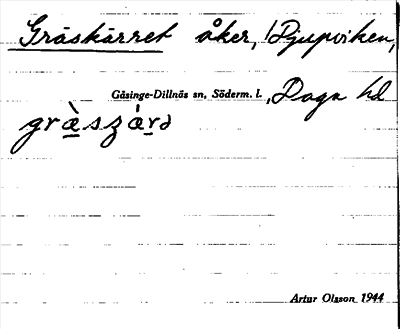 Gräskärret åker, Djupviken,
Gåsinge-Dillnäs sn, Söderm. l. , Daga hd
gràsʒàrd
Artur Olsson 1944